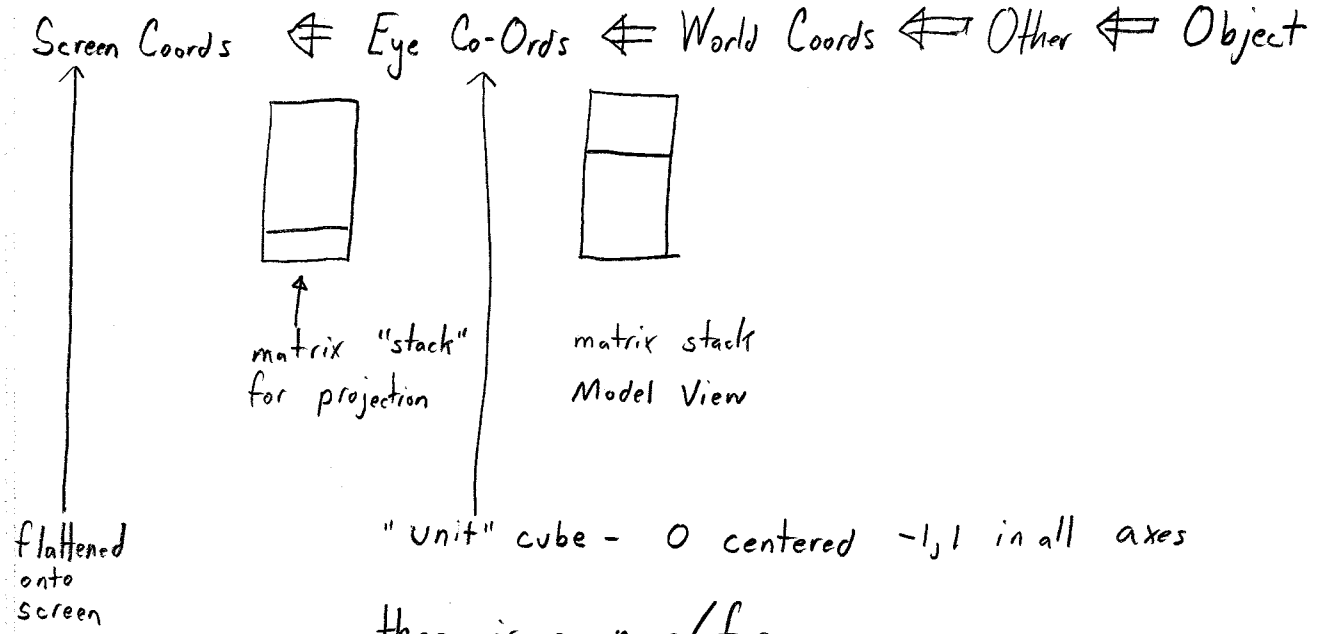 Screen Coords ⇐ Eye Co-Ords ⇐ World Coords ⇐ Other ⇐ Object
matrix "stack"
for projection
matrix stack
Model View
flattened
onto
screen
"unit" cube - 0 centered -1,1 in all axes